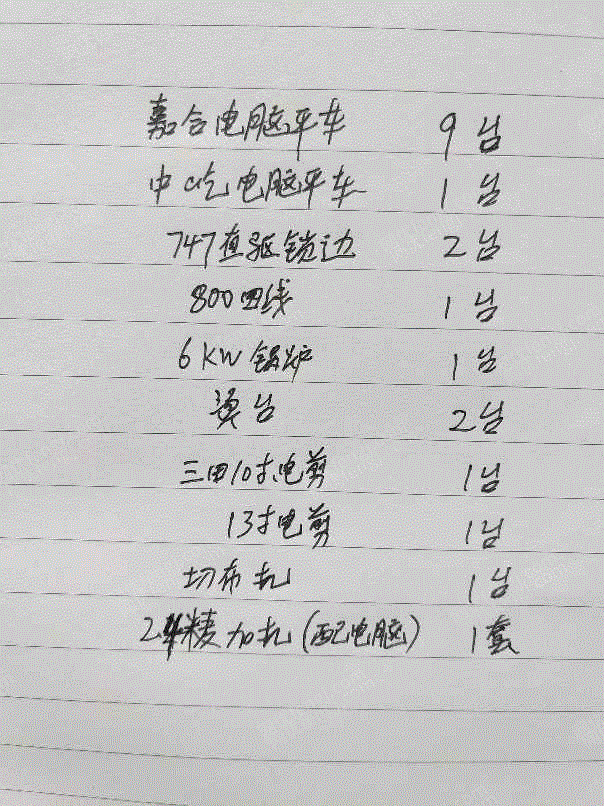 嘉合电脑平车 9台
中屹电脑平车 1台
747直驱锁边 2台
800四线 1台
6KW锅炉 1台
烫台 2台
三田10寸电剪 1台
13寸电剪 1台
切布机 1台
2精加机(配电脑) 1套